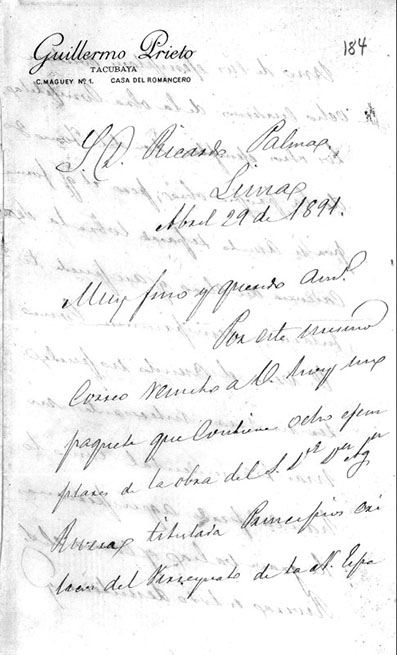 Guillermo Prieto
TACUBAYA
C. MAGUEY Nº 1. CASA DEL ROMANCERO
184
S. D. Ricardo Palma
Lima
Abril 29 de 1891.
Muy fino y querido am.
Por este mismo
Correo remito a U. hoy un
paquete que contiene ocho ejem
plares de la obra del S. Dr
Rivera titulada Principios cri
ticos del Virreynato de la N. Espa